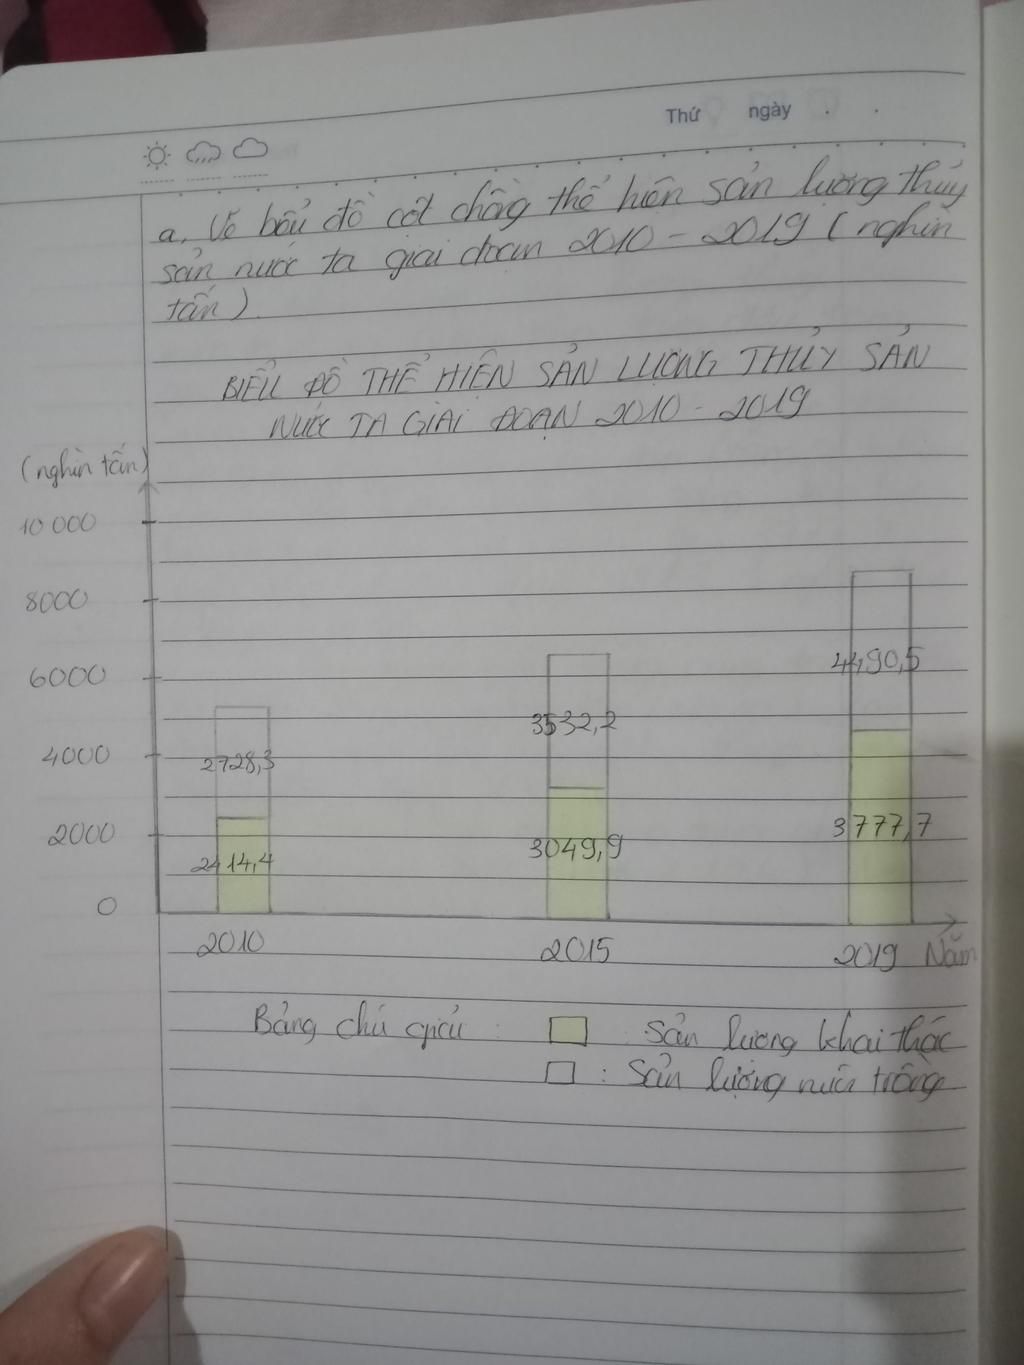 Thứ ngày
a, Vẽ biểu đồ cột chồng thể hiện sản lượng thủy
sản nước ta giai đoạn 2010 - 2019 ( nghìn
tấn )
BIỂU ĐỒ THỂ HIỆN SẢN LƯỢNG THỦY SẢN
NƯỚC TA GIAI ĐOẠN 2010 - 2019
(nghìn tấn)
10 000
8000
6000
4000
2000
0
2728,3
2414,4
3532,2
3049,9
4490,5
3777,7
2010 2015 2019 Năm
Bảng chú giải : : Sản lượng khai thác
: Sản lượng nuôi trồng